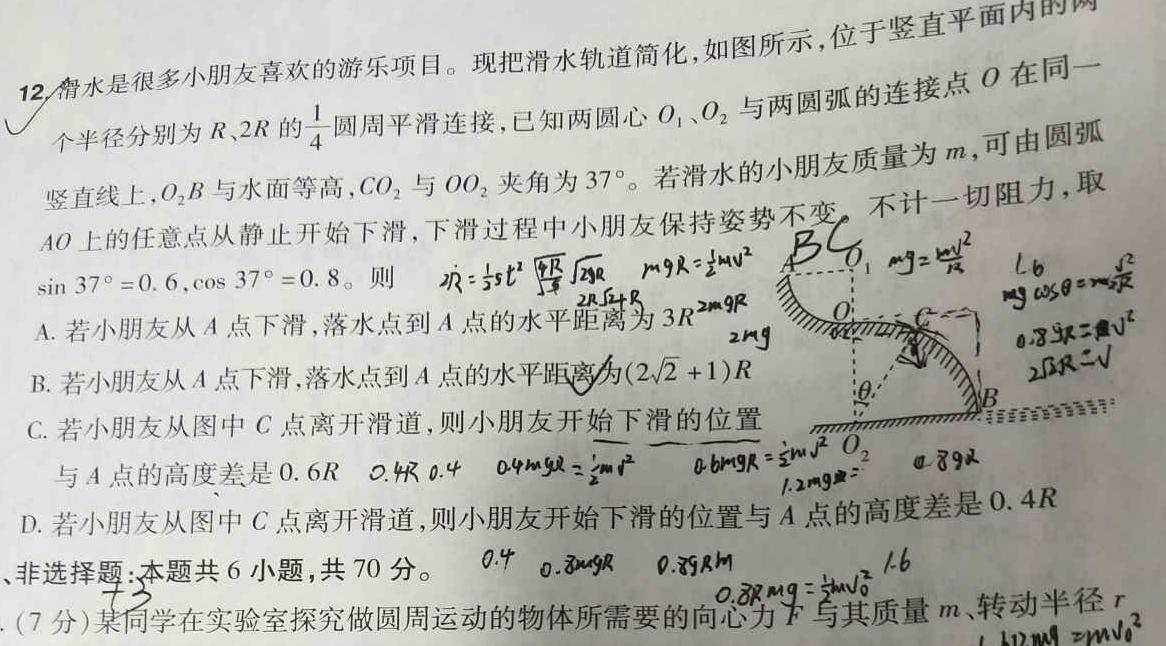 12. 滑水是很多小朋友喜欢的游乐项目。现把滑水轨道简化,如图所示,位于竖直平面内的两
个半径分别为 R、2R 的 1/4 圆周平滑连接,已知两圆心 O₁、O₂ 与两圆弧的连接点 O 在同一
竖直线上,O₂B 与水面等高,CO₂ 与 OO₂ 夹角为 37°。若滑水的小朋友质量为 m,可由圆弧
AO 上的任意点从静止开始下滑,下滑过程中小朋友保持姿势不变。不计一切阻力,取
BC
sin 37°=0.6,cos 37°=0.8。则
mgR=½mv²
mg=mv²/R
1.6
A O₁
2mgR
2mg
A. 若小朋友从 A 点下滑,落水点到 A 点的水平距离为 3R
O C
B. 若小朋友从 A 点下滑,落水点到 A 点的水平距离为(2√2+1)R
θ B
O₂
C. 若小朋友从图中 C 点离开滑道,则小朋友开始下滑的位置
与 A 点的高度差是 0.6R
0.4R 0.4 0.4mgR=½mv² 0.6mgR=½mv²
1.2mg
0.8gR
D. 若小朋友从图中 C 点离开滑道,则小朋友开始下滑的位置与 A 点的高度差是 0.4R
0.4 0.8mgR 0.8gRm 1.6
、非选择题:本题共 6 小题,共 70 分。
0.8Rmg=½mv₀²
(7 分)某同学在实验室探究做圆周运动的物体所需要的向心力 F 与其质量 m、转动半径 r